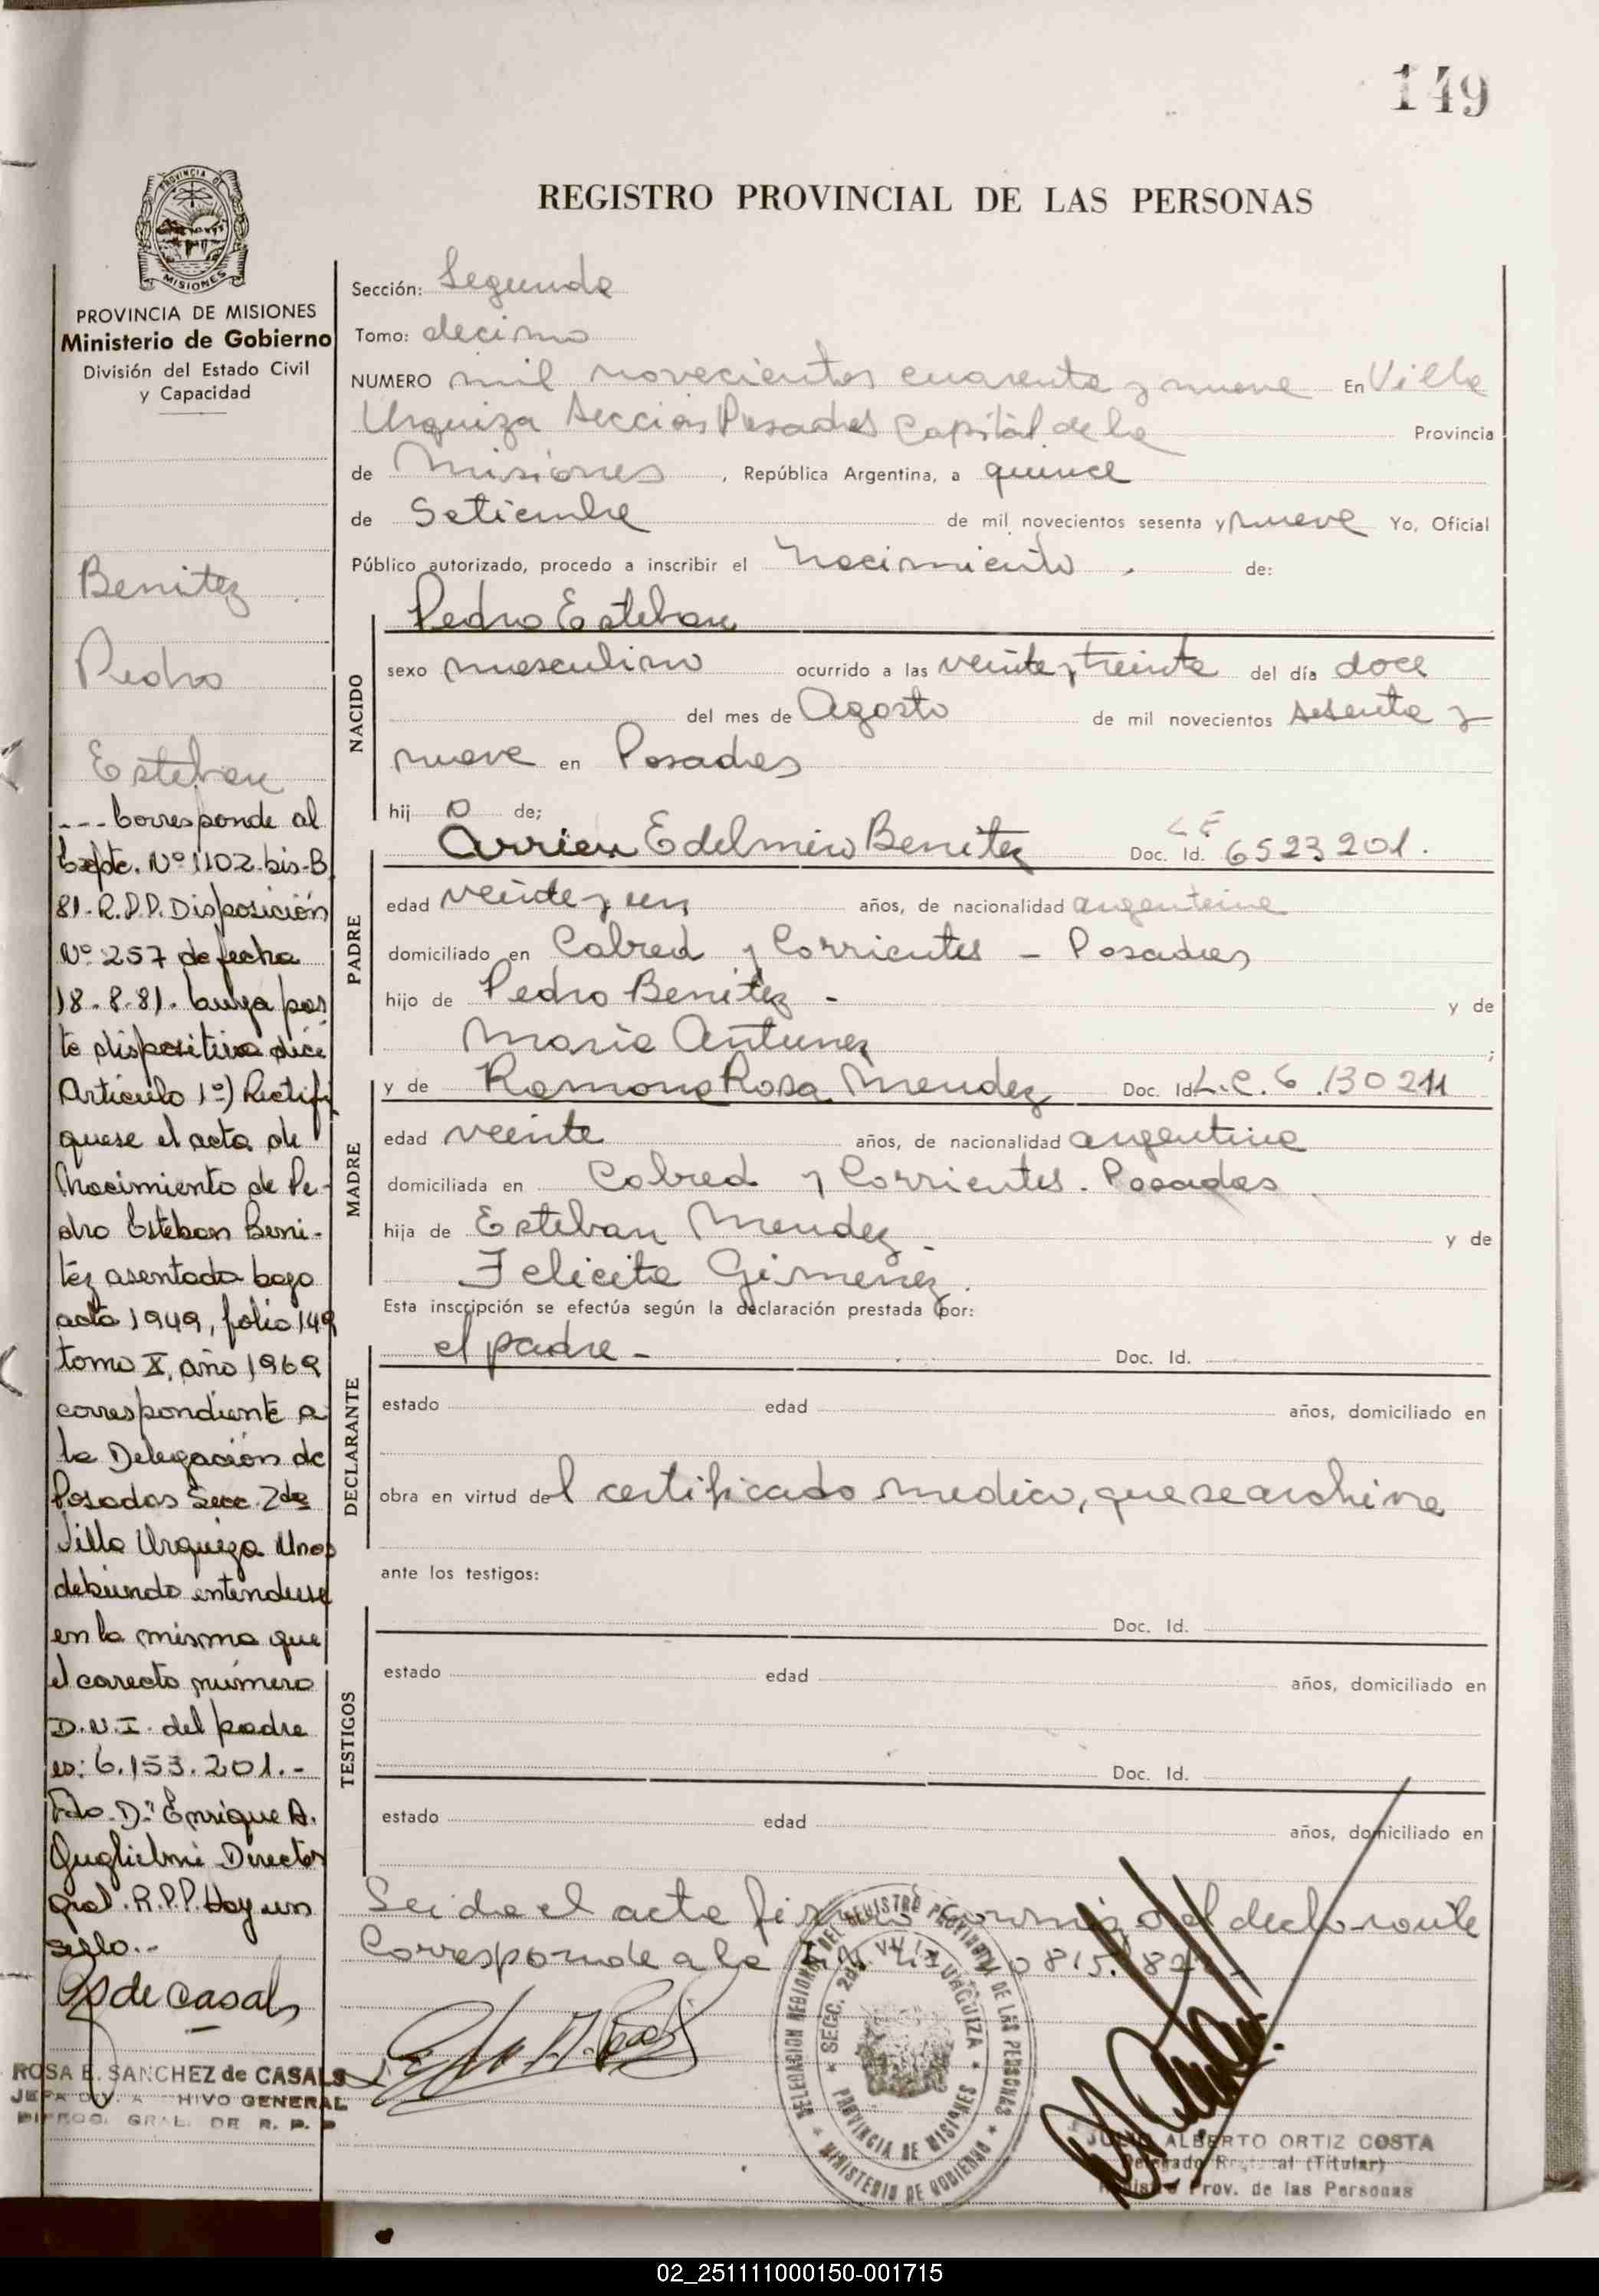 149
PROVINCIA DE
MISIONES
REGISTRO PROVINCIAL DE LAS PERSONAS
PROVINCIA DE MISIONES
Ministerio de Gobierno
División del Estado Civil
y Capacidad
Benitez
Pedro
Esteban
--- Corresponde al
Expte. Nº 1102-bis-B
81-R.P.P. Disposición
Nº 257 de fecha
18-8-81. cuya par
te dispositiva dice
Artículo 1º) Rectifi
quese el acta de
Nacimiento de Pe-
dro Esteban Beni-
téz asentada bajo
acta 1949, folio 149
tomo X, año 1969
correspondiente a
la Delegación de
Posadas Secc. 2da
Villa Urquiza Mnes
debiendo entenderse
en la misma que
el correcto número
D.N.I. del padre
es: 6.153.201.-
Fdo. Dn Enrique A.
Guglielmi Director
Gral. R.P.P. Hay un
sello.-
de Casals
ROSA E. SANCHEZ de CASALS
JEFA DIV. A HIVO GENERAL
GRAL. DE R. P. P
Sección: Segunda
Tomo: decimo
NUMERO mil novecientos cuarenta y nueve En Villa
Urquiza Sección Posadas Capital de la Provincia
de Misiones, República Argentina, a quince
de Setiembre de mil novecientos sesenta y nueve Yo, Oficial
Público autorizado, procedo a inscribir el nacimiento de:
NACIDO
Pedro Esteban
sexo masculino ocurrido a las veinte y treinta del día doce
del mes de Agosto de mil novecientos sesenta y
nueve en Posadas
hij o de;
PADRE
Arrien Edelmiro Benitez Doc. Id. L E 6523201.
edad veinte y un años, de nacionalidad argentina
domiciliado en Cabred y Corrientes - Posadas
hijo de Pedro Benitez - y de
Maria Antunez ;
MADRE
y de Ramona Rosa Mendez Doc. Id L.C. 6.130211
edad veinte años, de nacionalidad argentina
domiciliada en Cabred y Corrientes. Posadas
hija de Esteban Mendez - y de
Felicita Gimenez.
Esta inscripción se efectúa según la declaración prestada por:
DECLARANTE
el padre - Doc. Id.
estado edad años, domiciliado en
obra en virtud del certificado medico, que se archiva
ante los testigos:
TESTIGOS
Doc. Id.
estado edad años, domiciliado en
Doc. Id.
estado edad años, domiciliado en
Leida el acta firma conmigo el declarante
Corresponde a la
DELEGACION REGIONAL DEL REGISTRO PROVINCIAL DE LAS PERSONAS
MINISTERIO DE GOBIERNO
SECC. 2da. VILLA URQUIZA
PROVINCIA DE MISIONES
JULIO ALBERTO ORTIZ COSTA
Delegado Regional (Titular)
Registro Prov. de las Personas
02_251111000150-001715